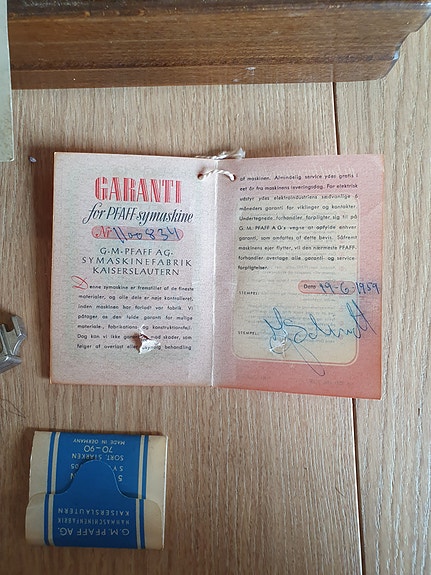 GARANTI
for PFAFF-symaskine
Nr 1100834
G·M·PFAFF AG·
SYMASKINEFABRIK
KAISERSLAUTERN
Denne symaskine er fremstillet af de fineste
materialer, og alle dele er nøje kontrolleret,
inden maskinen har forladt vor fabrik. Vi
påtager os den fulde garanti for mulige
materiale-, fabrikations- og konstruktionsfejl.
Dog kan vi ikke mod skader, som
følger af overlast eller behandling
af maskinen. Almindelig service ydes gratis i
eet år fra maskinens leveringsdag. For elektrisk
udstyr ydes elektroindustriens sædvanlige 6
måneders garanti for viklinger og kontakter.
Undertegnede forhandler forpligter sig til på
G. M. PFAFF A G's vegne at opfylde enhver
garanti, som omfattes af dette bevis. Såfremt
maskinens ejer flytter, vil den nærmeste PFAFF-
forhandler overtage alle garanti- og service-
forpligtelser.
Dato 19-6 1959
STEMPEL:
STEMPEL:
G. M. PFAFF AG.
NÄHMASCHINENFABRIK
KAISERSLAUTERN
SORT. STÄRKEN
70-90
MADE IN GERMANY